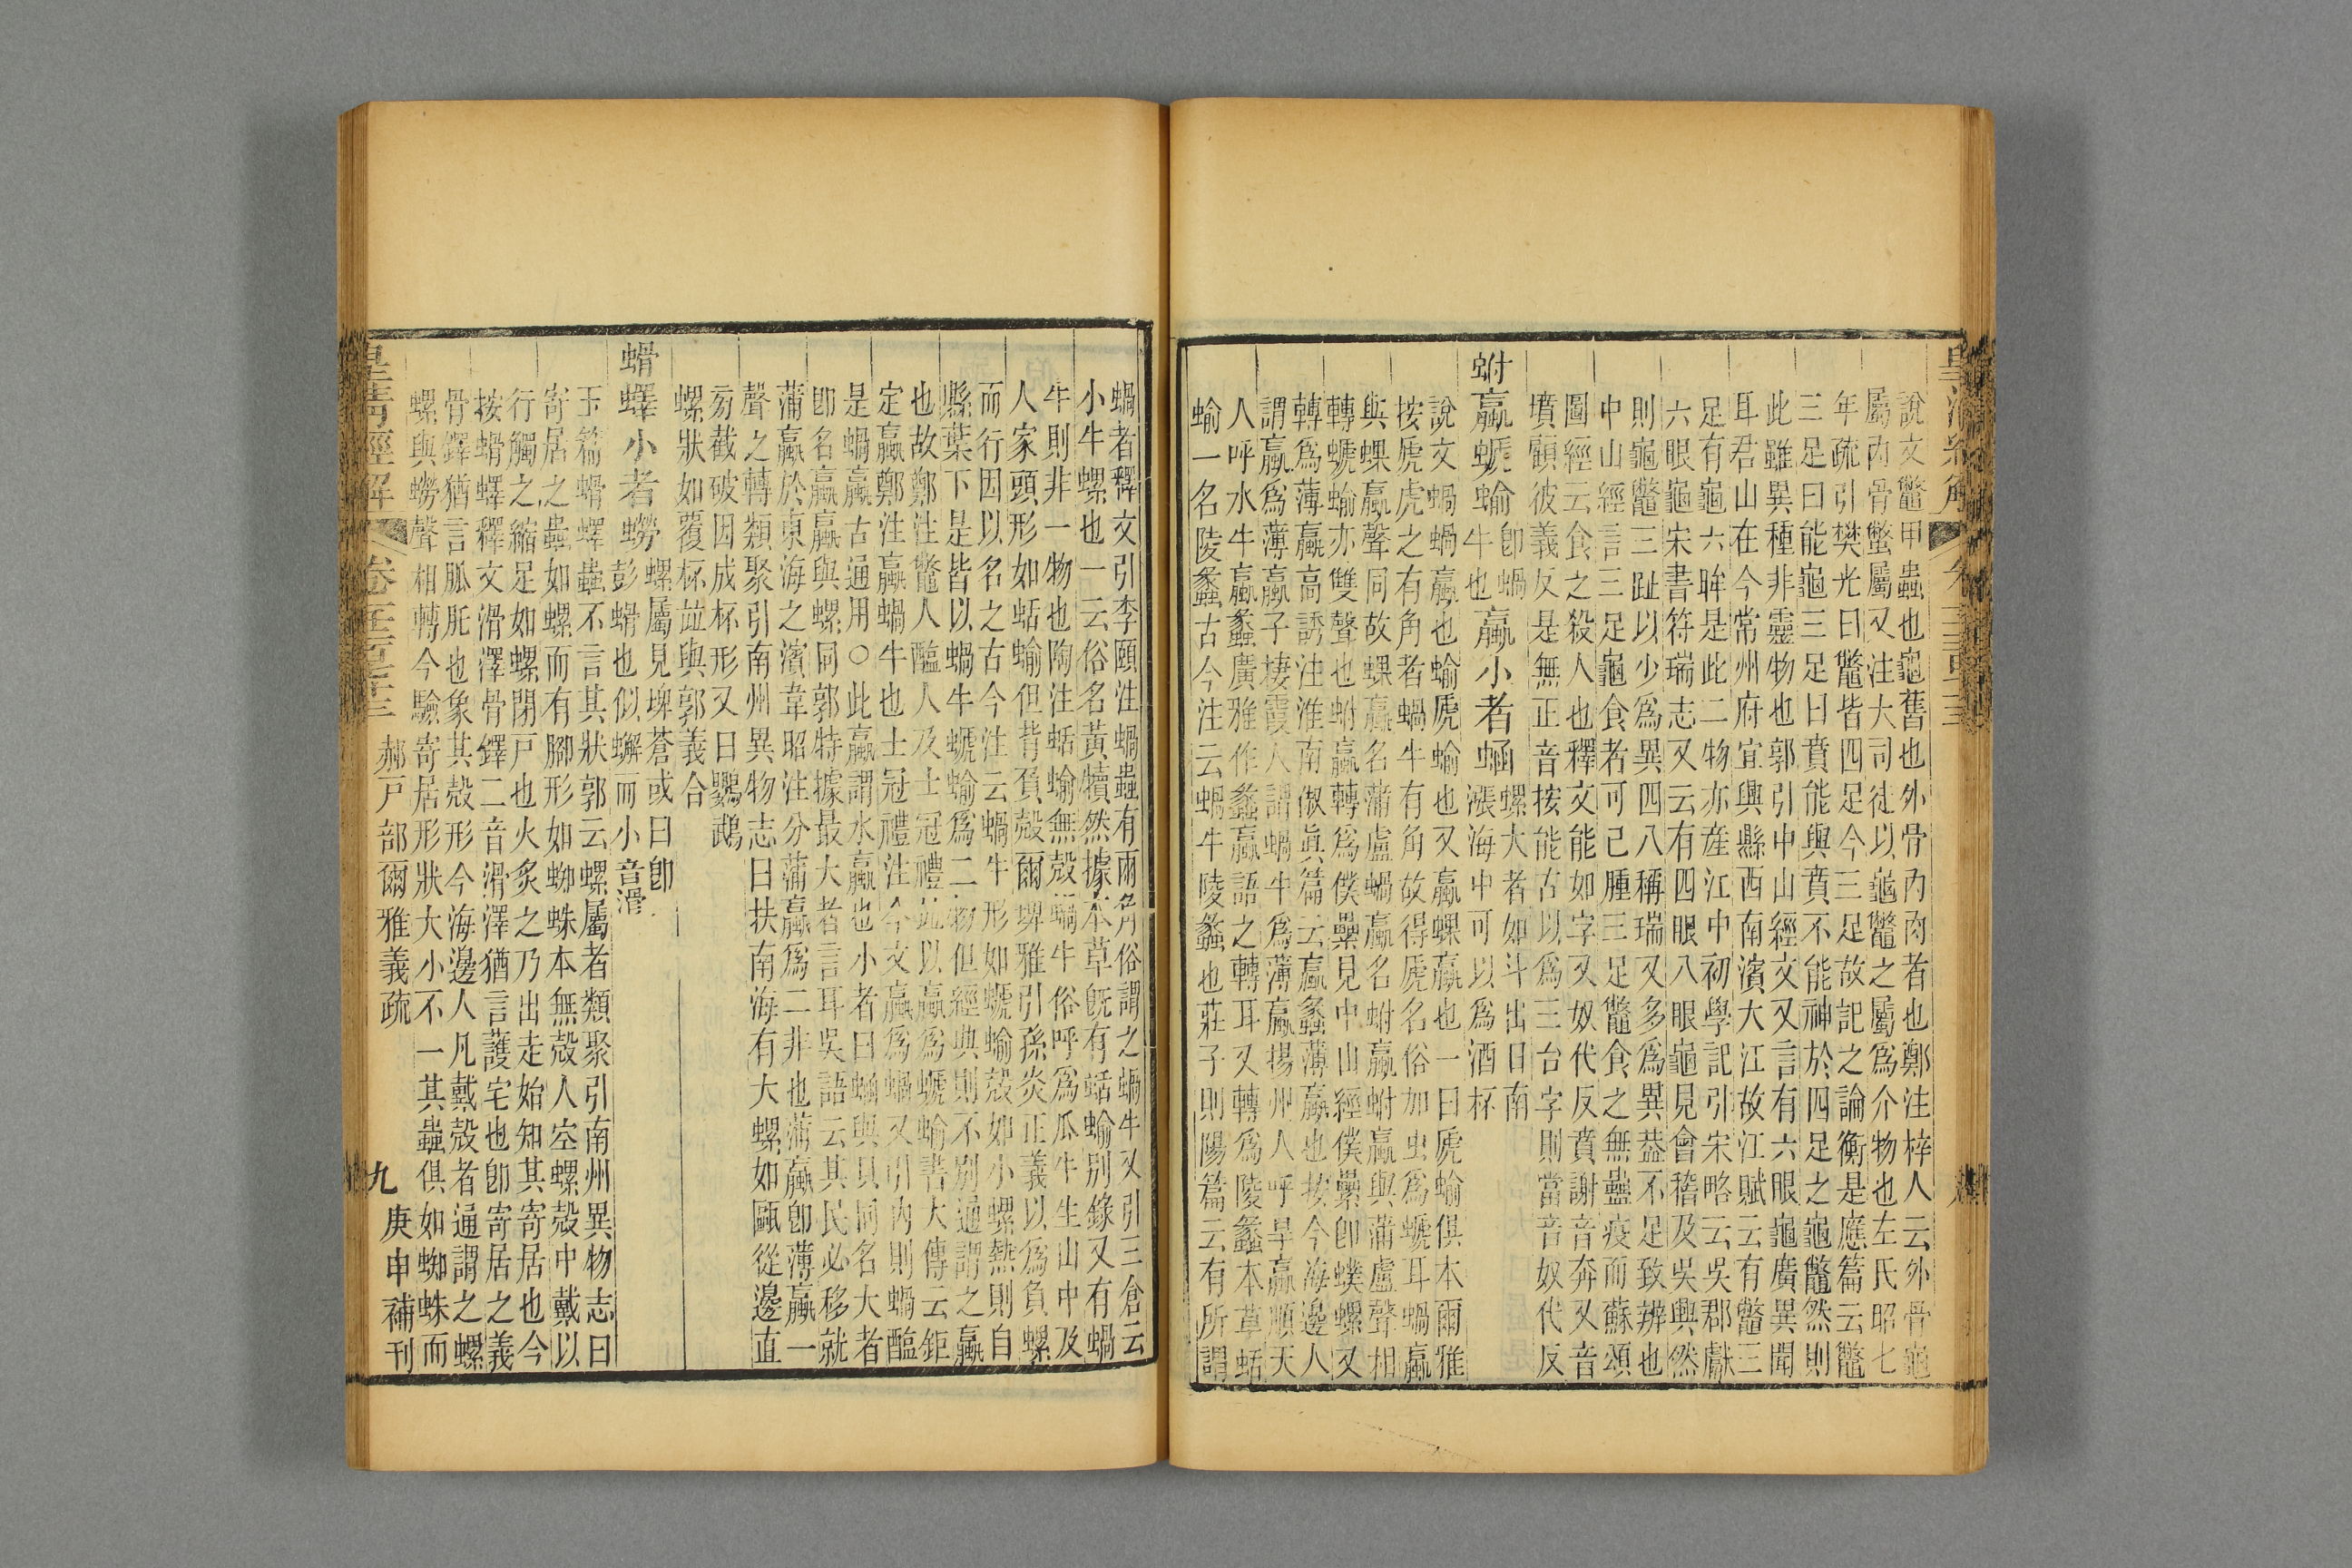 說文鼈甲蟲也龜舊也外骨內肉者也鄭注梓人云外骨龜
屬內骨鼈屬又注大司徒以龜鼈之屬爲介物也左氏昭七
年疏引樊光曰鼈皆四足今三足故記之論衡是應篇云鼈
三足曰能龜三足曰賁能與賁不能神於四足之龜鼈然則
此雖異種非靈物也郭引中山經文又言有六眼龜廣異聞
耳君山在今常州府宜興縣西南濱大江故江賦云有鼈三
足有龜六眸是此二物亦産江中初學記引宋略云吳郡獻
六眼龜宋書符瑞志又云有四眼八眼龜見會稽及吳興然
則龜鼈三趾以少爲異四八稱瑞又多爲異葢不足致辨也
中山經言三足龜食者可已腫三足鼈食之無蠱疫而蘇頌
圖經云食之殺人也釋文能如字又奴代反賁謝音奔又音
墳顧彼義反是無正音按能古以爲三台字則當音奴代反
蚹蠃螔蝓即蝸牛也蠃小者蜬螺大者如斗出日南漲海中可以爲酒杯
說文蝸蝸蠃也蝓虒蝓也又蠃蜾蠃也一曰虒蝓俱本爾雅
按虒虎之有角者蝸牛有角故得虒名俗加虫爲螔耳蝸蠃
與蜾蠃聲同故蜾蠃名蒲盧蝸蠃名蚹蠃蚹蠃與蒲盧聲相
轉螔蝓亦雙聲也蚹蠃轉爲僕纍見中山經僕纍卽蟔螺又
轉爲薄蠃高誘注淮南俶眞篇云蠃蠡薄蠃也按今海邊人
謂蠃爲薄蠃子棲霞人謂蝸牛爲薄蠃揚州人呼旱蠃順天
人呼水牛蠃蠡廣雅作蠡蠃語之轉耳又轉爲陵蠡本草蛞
蝓一名陵蠡古今注云蝸牛陵蠡也莊子則陽篇云有所謂
蝸者釋文引李頤注蝸蟲有兩角俗謂之蝸牛又引三倉云
小牛螺也一云俗名黃犢然據本草旣有蛞蝓別錄又有蝸
牛則非一物也陶注蛞蝓無殼蝸牛俗呼爲瓜牛生山中及
人家頭形如蛞蝓但背負殼爾埤雅引孫炎正義以爲負螺
而行因以名之古今注云蝸牛形如螔蝓殼如小螺熱則自
縣葉下是皆以蝸牛螔蝓爲二物但經典則不別通謂之蠃
也故鄭注鼈人醢人及士冠禮竝以蠃爲螔蝓書大傳云鉅
定蠃鄭注蠃蝸牛也士冠禮注今文蠃爲蝸又引內則蝸醢
是蝸蠃古通用○此蠃謂水蠃也小者曰蜬與貝同名大者
卽名蠃蠃與螺同郭特據最大者言耳吳語云其民必移就
蒲蠃於東海之濱韋昭注分蒲蠃爲二非也蒲蠃卽薄蠃一
聲之轉類聚引南州異物志曰扶南海有大螺如甌從邊直
旁截破因成杯形又曰鸚鵡
螺狀如覆杯竝與郭義合
蜎蠌小者蟧螺屬見埤蒼或曰卽彭蜎也似蠏而小音滑
玉篇蜎蠌蟲不言其狀郭云螺屬者類聚引南州異物志曰
寄居之蟲如螺而有腳形如蜘蛛本無殼人空螺殼中戴以
行觸之縮足如螺閉戶也火炙之乃出走始知其寄居也今
按蜎蠌釋文滑澤骨鐸二音滑澤猶言護宅也卽寄居之義
骨鐸猶言胍肫也象其殼形今海邊人凡戴殼者通謂之螺
螺與蟧聲相轉今驗寄居形狀大小不一其蟲俱如蜘蛛而
皇清經解 郝戶部爾雅義疏 九 庚申補刊